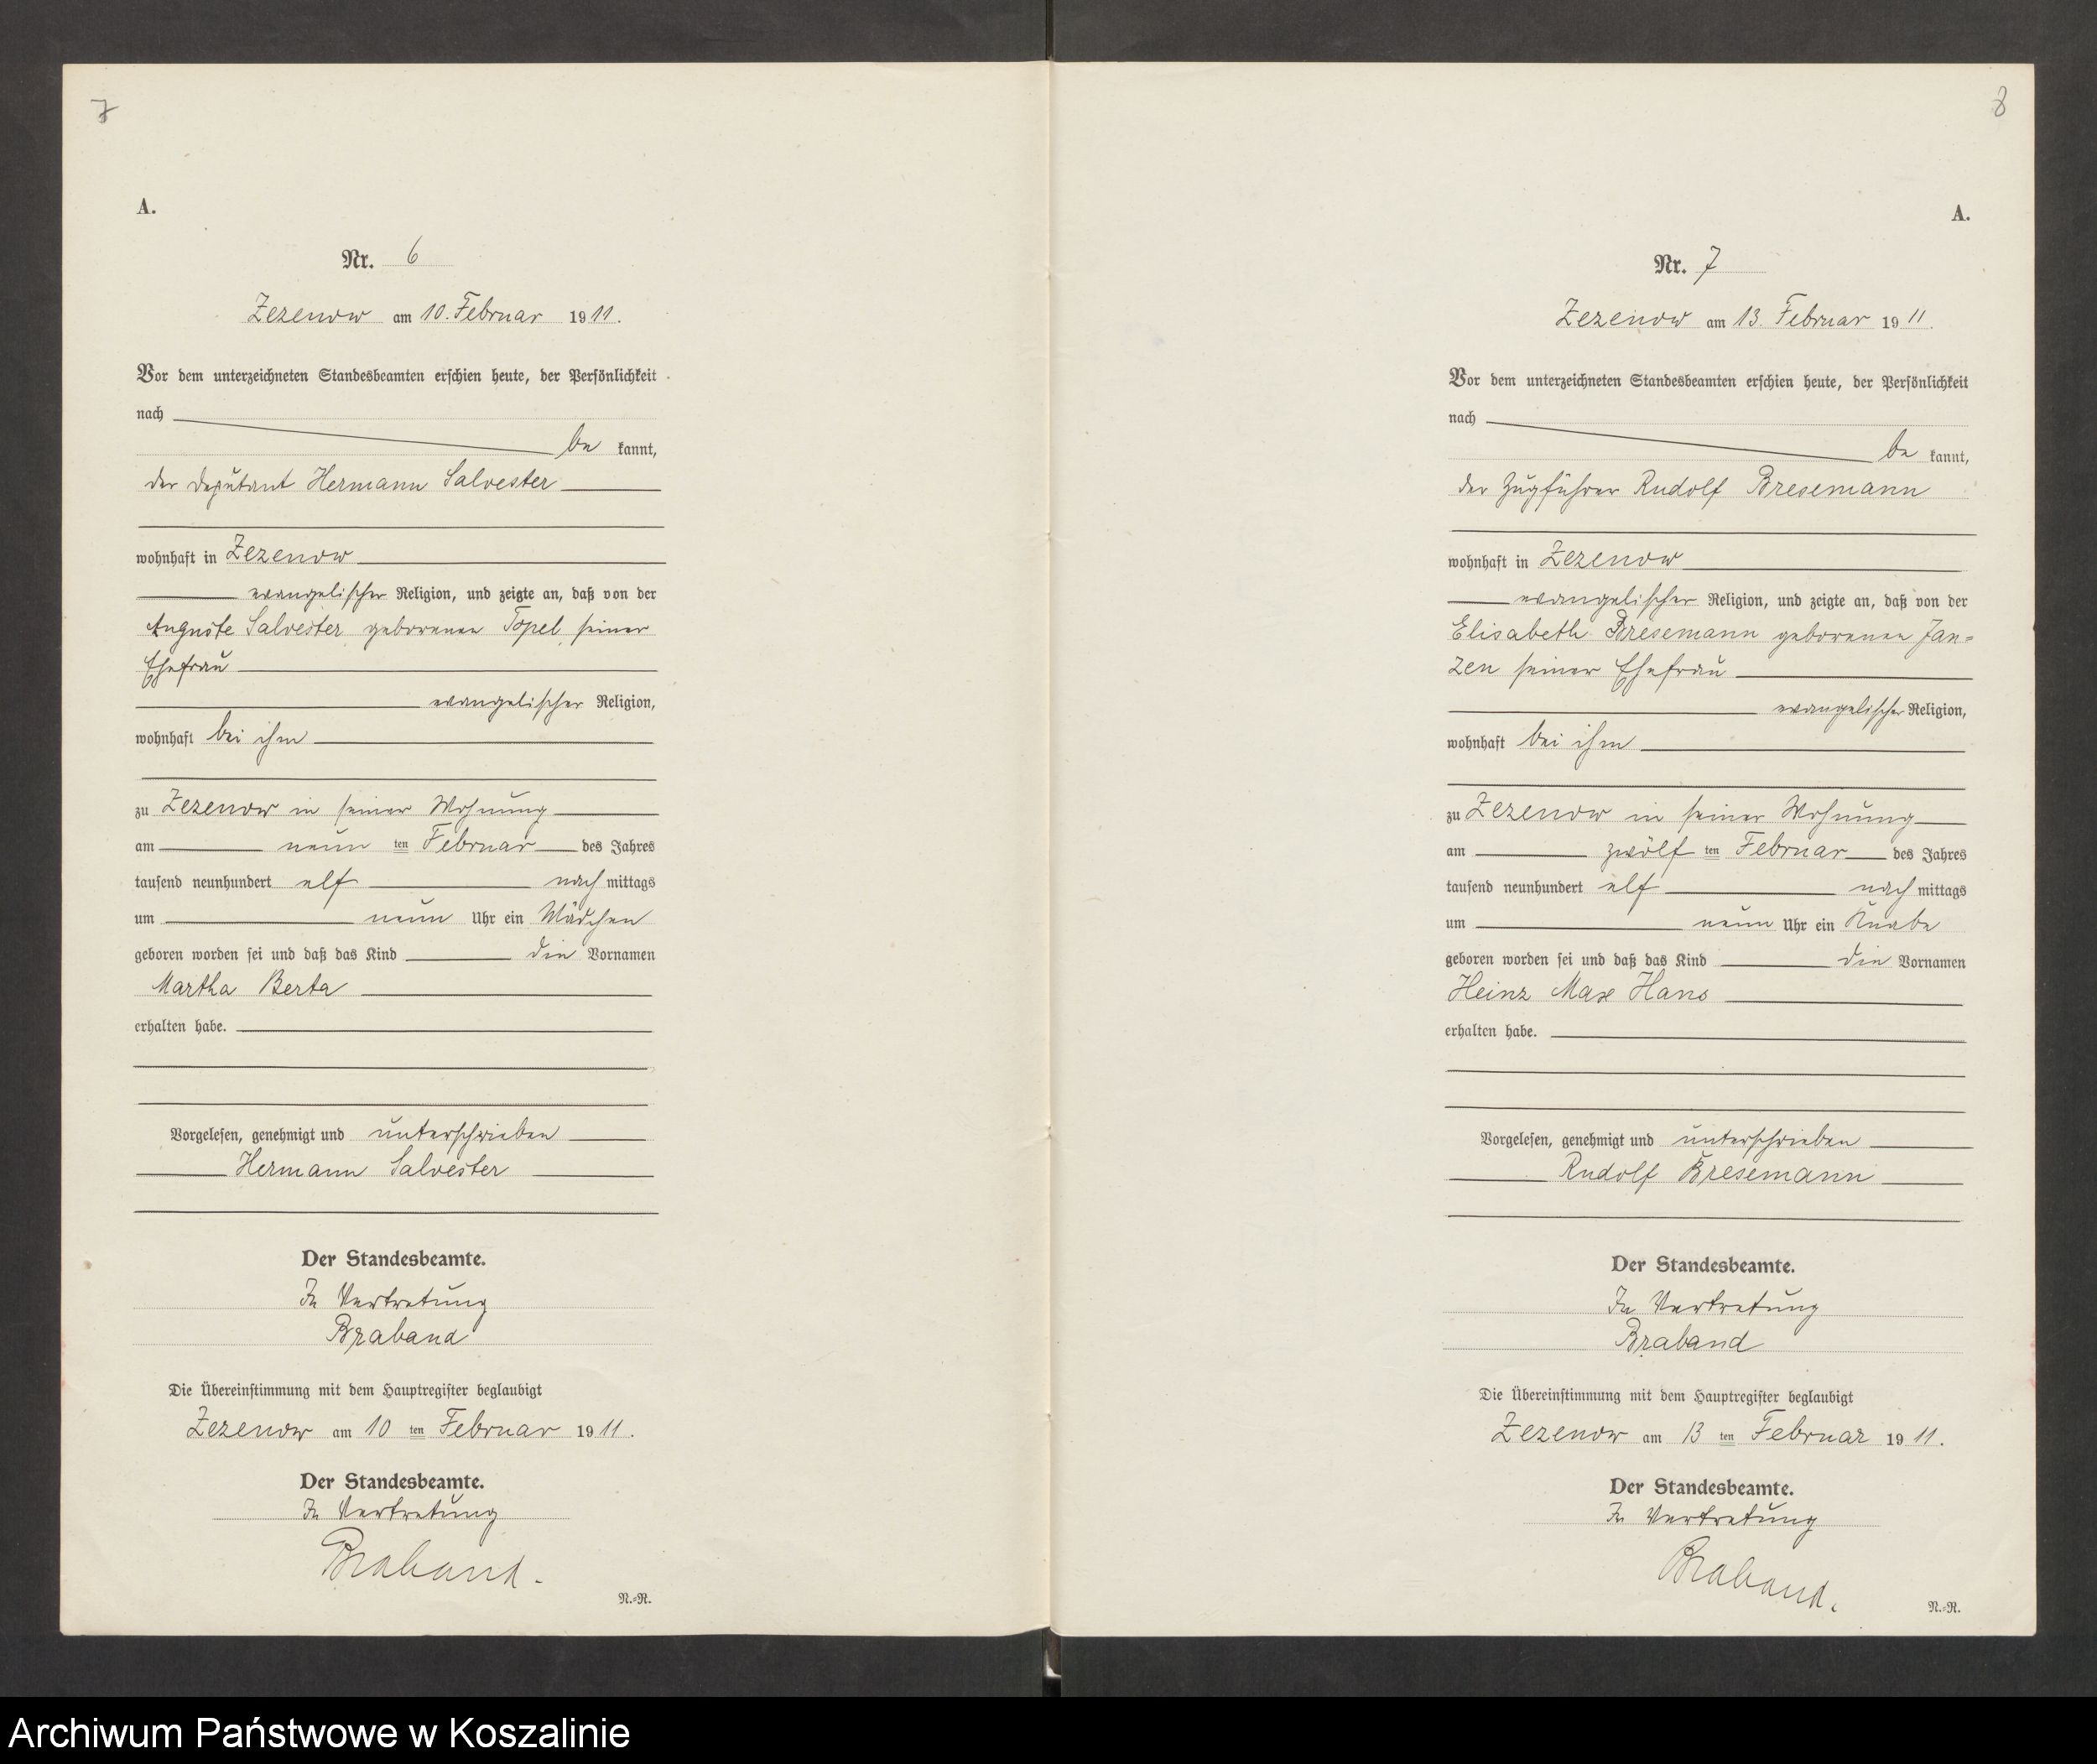 7
A.
Nr. 6
Zezenow am 10. Februar 1911.
Vor dem unterzeichneten Standesbeamten erschien heute, der Persönlichkeit
nach
be kannt,
der Deputant Hermann Salvester
wohnhaft in Zezenow
evangelischer Religion, und zeigte an, daß von der
Auguste Salvester geborenen Topel, seiner
Ehefrau
evangelischer Religion,
wohnhaft bei ihm
zu Zezenow in seiner Wohnung
am neun ten Februar des Jahres
tausend neunhundert elf nach mittags
um neun Uhr ein Mädchen
geboren worden sei und daß das Kind die Vornamen
Martha Berta
erhalten habe.
Vorgelesen, genehmigt und unterschrieben
Hermann Salvester
Der Standesbeamte.
In Vertretung
Braband
Die Übereinstimmung mit dem Hauptregister beglaubigt
Zezenow am 10 ten Februar 1911.
Der Standesbeamte.
In Vertretung
Braband.
N.=R.
8
A.
Nr. 7
Zezenow am 13. Februar 1911.
Vor dem unterzeichneten Standesbeamten erschien heute, der Persönlichkeit
nach
be kannt,
der Zugführer Rudolf Bresemann
wohnhaft in Zezenow
evangelischer Religion, und zeigte an, daß von der
Elisabeth Bresemann geborenen Jan=
zen seiner Ehefrau
evangelischer Religion,
wohnhaft bei ihm
zu Zezenow in seiner Wohnung
am zwölf ten Februar des Jahres
tausend neunhundert elf nach mittags
um neun Uhr ein Knabe
geboren worden sei und daß das Kind die Vornamen
Heinz Max Hans
erhalten habe.
Vorgelesen, genehmigt und unterschrieben
Rudolf Bresemann
Der Standesbeamte.
In Vertretung
Braband
Die Übereinstimmung mit dem Hauptregister beglaubigt
Zezenow am 13 ten Februar 1911.
Der Standesbeamte.
In Vertretung
Braband.
N.=R.
Archiwum Państwowe w Koszalinie